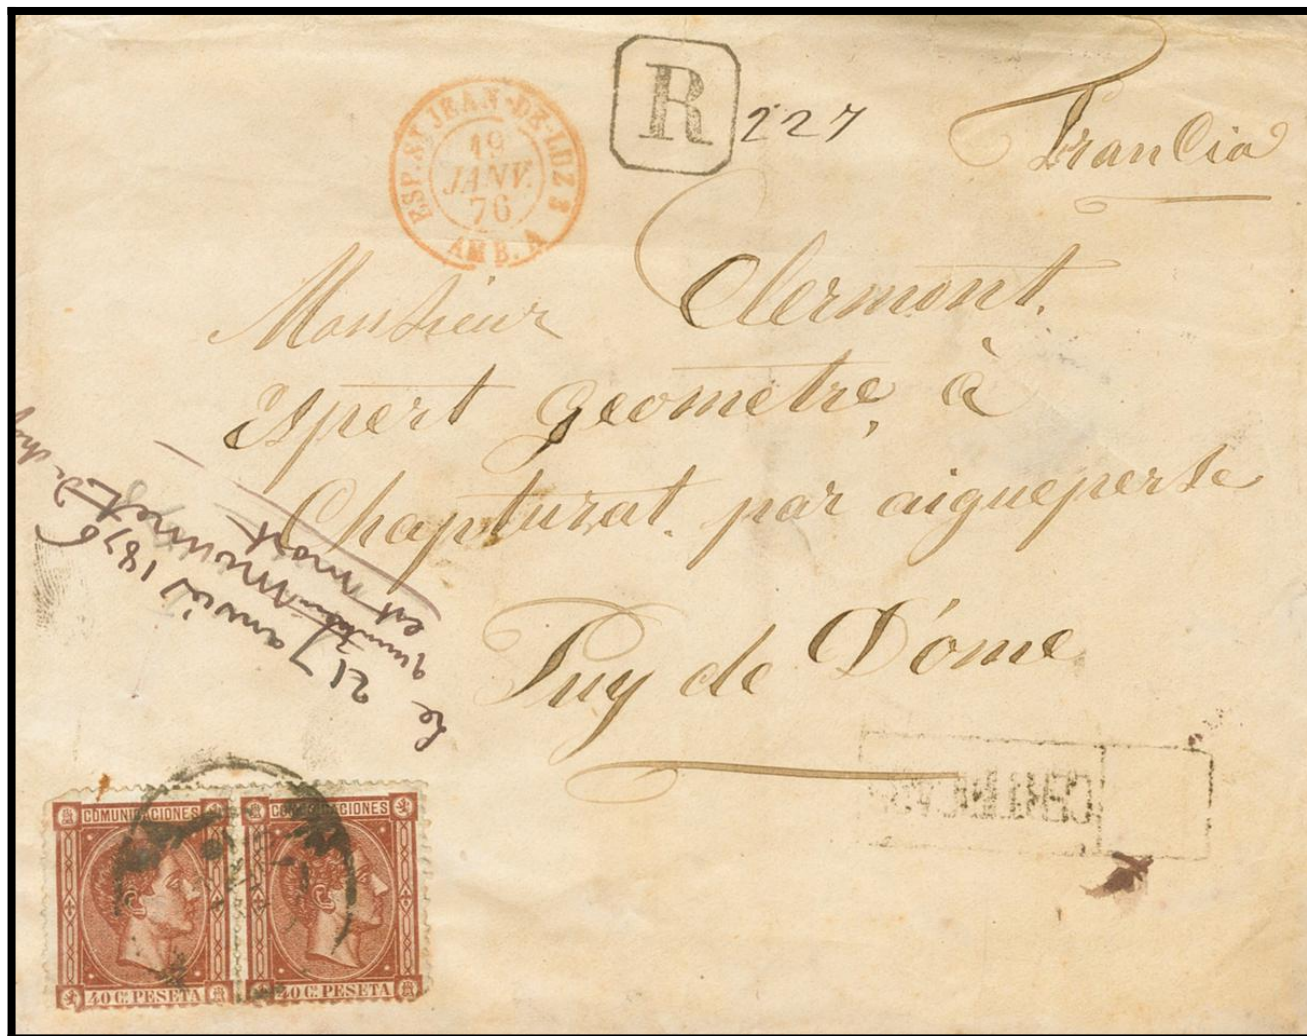 ESP. ST JEAN-DE-LUZ 3
19
JANV.
76
AMB. A
R
227
Francia
Monsieur Clermont.
Expert Geometre, à
Chapturat. par aigueperse
Puy de D'ome
le 21 Janvier 1876
est mort
CERTIFICADO
COMUNICACIONES
40 C. PESETA
COMUNICACIONES
40 C. PESETA